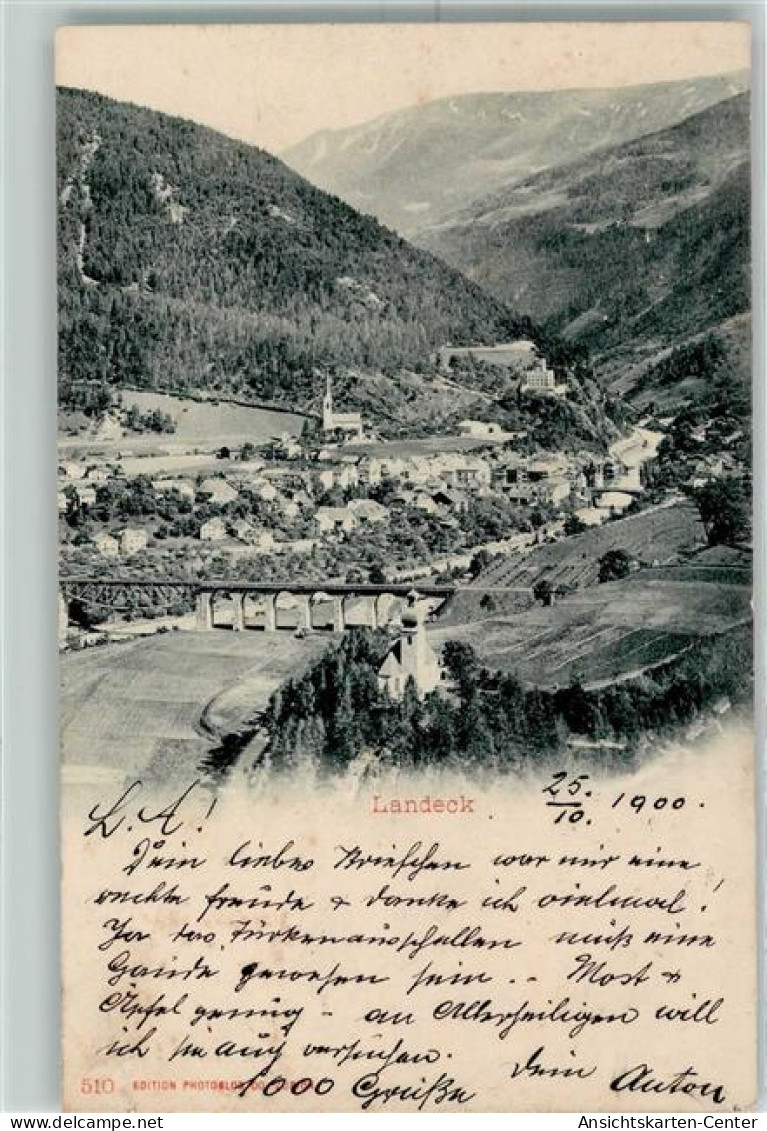 Landeck
25./10. 1900.
L. A!
Dein liebes Briefchen war mir eine
rechte freude & danke ich vielmal!
Ja das Türkenausschellen muß eine
Gaude gewesen sein. - Most &
Äpfel genug - an Allerheiligen will
ich sie auch versuchen.
Dein Anton
1000 Grüße
510 EDITION PHOTOGLOB CO
Ansichtskarten-Center